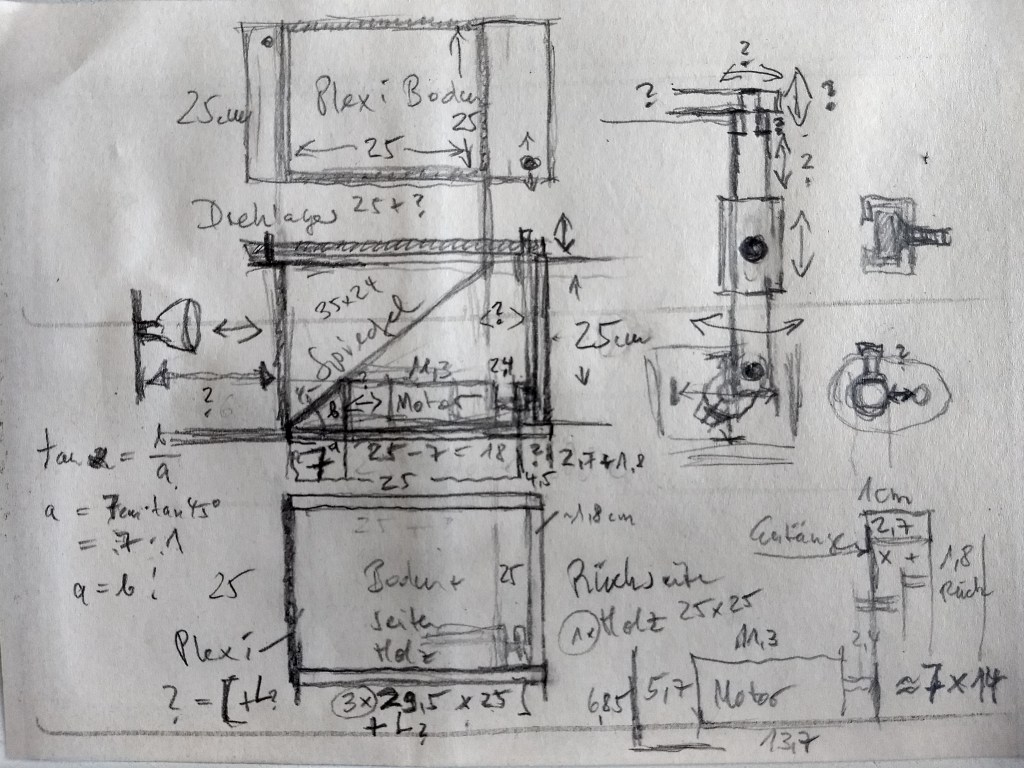 Plexi Boden
25cm
25
25
25 + ?
Drehlager
35x24
Spiegel
?
25cm
11,3
2,4
Motor
?
?
b
a
7
25-7=18
?
2,7+1,8
25
4,5
tan = b/a
a = 7cm·tan 45°
= 7·1
a = b!
25
~1,8cm
25
Boden +
seiten
Holz
25
Plexi
? = [+L?
3x 29,5 x 25]
+ L?
Rückseite
1x Holz 25x25
?
?
?
?
?
1cm
2,7
x +
1,8
Rück
11,3
2,4
6,85
5,7
Motor
≈7x14
13,7